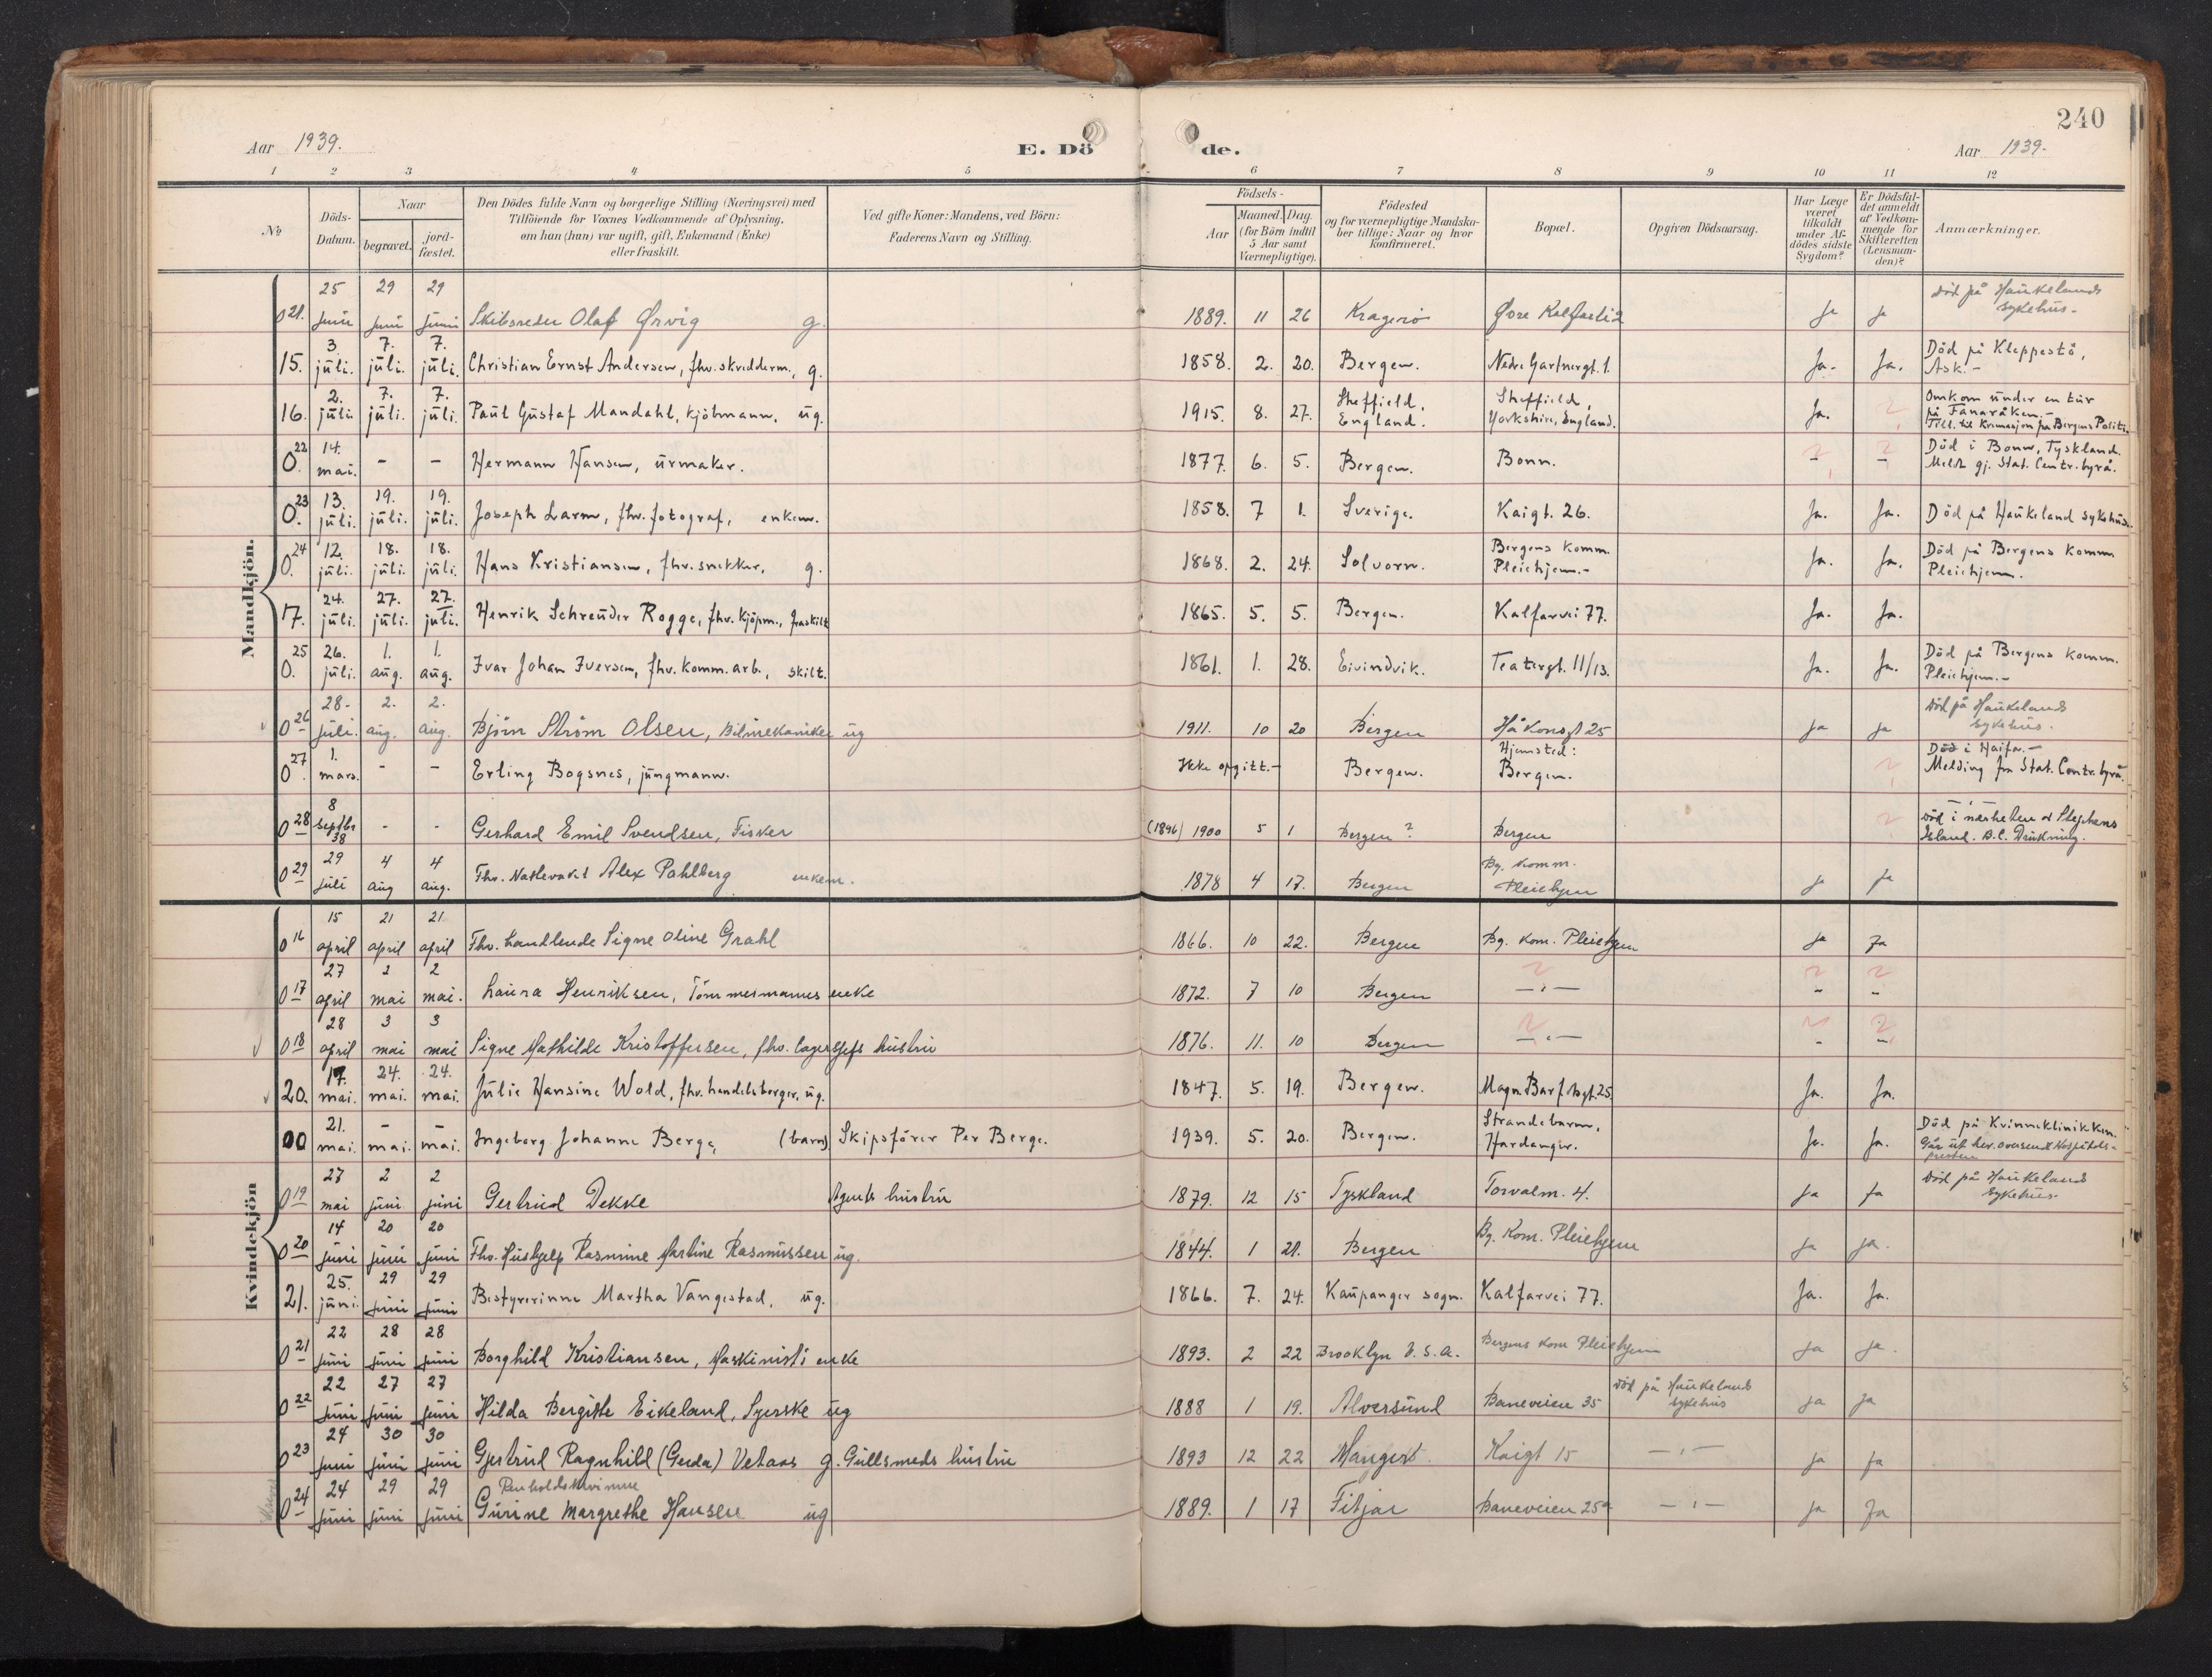 240
Aar 1939. E. Dö de. Aar 1939.
1 2 3 4 5 6 7 8 9 10 11 12
№ Döds-Datum. Naar begravet. jord-fæstet.
Den Dödes fulde Navn og borgerlige Stilling (Næringsvei) med
Tilföiende for Voxnes Vedkommende af Oplysning,
om han (hun) var ugift, gift, Enkemand (Enke)
eller fraskilt.
Ved gifte Koner: Mandens, ved Börn:
Faderens Navn og Stilling.
Födsels-
Aar Maaned. Dag.
(for Börn indtil
5 Aar samt
Værnepligtige).
Födested
og for værnepligtige Mandska-
ber tillige: Naar og hvor
Konfirmeret.
Bopæl.
Opgiven Dödsaarsag.
Har Læge
været
tilkaldt
under Af-
dödes sidste
Sygdom?
Er Dödsfal-
det anmeldt
af Vedkom-
mende for
Skifteretten
(Lensman-
den)?
Anmærkninger.
Mandkjön.
021. 25 juni 29 juni 29 juni Skibsreder Olaf Ørvig g. 1889. 11 26 Kragerø Øvre Kalfarli 2 Ja ja Död på Haukelands sykehus.
15. 3. juli. 7. juli. 7. juli. Christian Ernst Andersen, fhv. skredderm., g. 1858. 2. 20. Bergen. Nedre Gartnergt. 1. Ja. Ja. Död på Kleppestö, Ask.-
16. 2. juli. 7. juli. 7. juli. Paul Gustaf Mandahl, kjöbmann, ug. 1915. 8. 27. Sheffield, England. Sheffield, Yorkshire, England. Ja. Omkom under en tur på Fanaråken.- Till. til kremasjon fra Bergens Politi.
0.22 14. mai. - - Hermann Hansen, urmaker. 1877. 6. 5. Bergen. Bonn. - - Död i Bonn, Tyskland. Meldt gj. Stat. Centr.byrå.
0.23 13. juli. 19. juli. 19. juli. Joseph Larm, fhv. fotograf, enkem. 1858. 7 1. Sverige. Kaigt. 26. Ja. Ja. Död på Haukeland sykehus.
0.24 12. juli. 18. juli. 18. juli. Hans Kristiansen, fhv. snekker, g. 1868. 2. 24. Solvorn. Bergens komm. Pleiehjem.- Ja. Ja. Död på Bergens komm Pleiehjem.
17. 24. juli. 27. juli. 27. juli. Henrik Schreuder Rogge, fhv. kjöpm., fraskilt 1865. 5. 5. Bergen. Kalfarvei 77. Ja. Ja.
0.25 26. juli. 1. aug. 1. aug. Ivar Johan Iversen, fhv. komm. arb., skilt. 1861. 1. 28. Eivindvik. Teatergt. 11/13. Ja. Ja. Död på Bergens komm. Pleiehjem.-
026 28- juli. 2. aug. 2. aug. Björn Ström Olsen, Bilmekaniker ug 1911. 10 20 Bergen Håkonsgt 25 ja ja Död på Haukelands sykehus.
0.27 1. mars. - - Erling Bogsnes, jungmann. Ikke opgitt.- Bergen. Hjemsted: Bergen. Död i Haifa.- Melding fra Stat. Centr. byrå.
028 8 septbr 38 - - Gerhard Emil Svendsen, Fisker (1896) 1900 5 1 Bergen? Bergen Död i nærheten af Stephens Island. B.C. Drukning.
029 29 juli 4 aug 4 aug. Fhv. Nattevakt Alex Pahlberg enkem. 1878 4 17. Bergen Bg. Komm. Pleiehjem ja ja
Kvindekjön
016 15 april 21 april 21 april Fhv. handlende Signe Oline Grahl 1866. 10 22. Bergen Bg. Kom. Pleiehjem ja ja
017 27 april 2 mai 2 mai. Laura Henriksen, Tömmermanns enke 1872. 7 10 Bergen - " - - -
018 28 april 3 mai 3 mai Signe Mathilde Kristoffersen, fhv. lagersjefs hustru 1876. 11. 10 Bergen - " - - -
20. 17. mai. 24. mai. 24. mai. Julie Hansine Wold, fhv. handelsborger, ug. 1847. 5. 19. Bergen. Magn. Barf.tsgt. 25. Ja. Ja.
00 21. mai. - mai. - mai. Ingeborg Johanne Berge, (barn) Skipsförer Per Berge. 1939. 5. 20. Bergen. Strandebarm, Hardanger. Ja. Ja. Död på Kvinneklinikken. Går ut her. oversendt Hospitals-presten
019 27 mai 2 juni 2 juni Gertrud Dekke Agents hustru 1879. 12 15 Tyskland Torvalm. 4. ja ja Död på Haukelands sykehus.
020 14 juni 20 juni 20 juni Fhv. Hushjelp Rasmine Martine Rasmussen ug. 1844. 1 21. Bergen Bg. Kom. Pleiehjem ja ja.
21. 25. juni. 29 juni 29 juni Bestyrerinne Martha Vangestad, ug. 1866. 7. 24. Kaupanger sogn. Kalfarvei 77. Ja. Ja.
021 22 juni 28 juni 28 juni Borghild Kristiansen, Maskinists enke 1893. 2 22 Brooklyn U.S.A. Bergens Kom Pleiehjem ja ja.
022 22 juni 27 juni 27 juni Hilda Bergitte Eikeland, Syerske ug 1888 1 19. Alversund Baneveien 35 Död på Haukelands sykehus ja ja
023 24 juni 30 juni 30 juni Gjertrud Ragnhild (Gerda) Vetaas g. Gullsmeds hustru 1893 12 22 Manger. Kaigt 15 - " - ja ja
024 24 juni 29 juni 29 juni Renholdskvinne Gurine Margrethe Hansen ug 1889. 1 17 Fitjar Baneveien 25a - " - ja ja